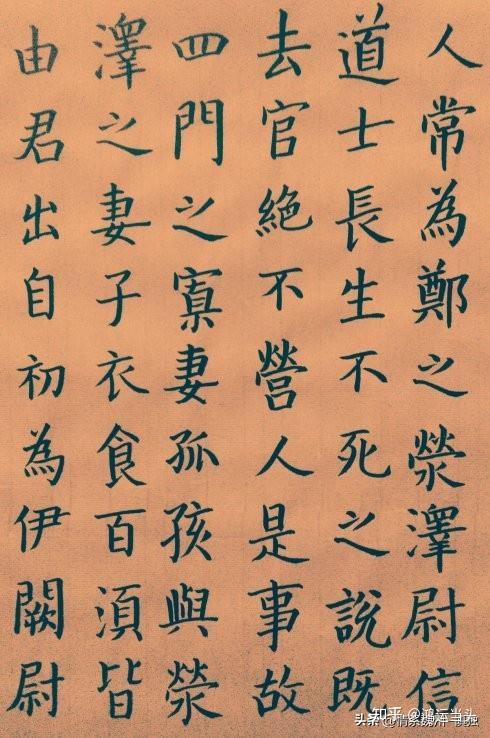 人常為鄭之滎澤尉信
道士長生不死之說既
去官絕不營人是事故
四門之寡妻孤孩與滎
澤之妻子衣食百須皆
由君出自初為伊闕尉
知乎 @鴻运当头